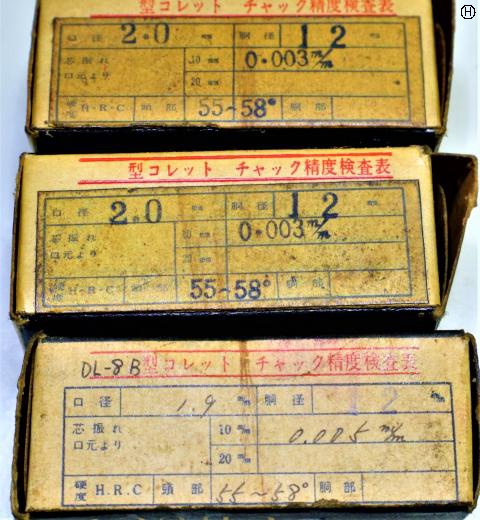 H
型コレット チャック精度検査表
口径 2.0 m/m 胴径 12 m/m
芯振れ 口元より 10 m/m 0.003 m/m
20 m/m
硬度 H.R.C 頭部 55~58° 胴部
型コレット チャック精度検査表
口径 2.0 m/m 胴径 12 m/m
芯振れ 口元より 10 m/m 0.003 m/m
20 m/m
硬度 H.R.C 頭部 55~58° 胴部
DL-8B 型コレット チャック精度検査表
口径 1.9 m/m 胴径 12 m/m
芯振れ 口元より 10 m/m 0.005 m/m
20 m/m
硬度 H.R.C 頭部 55~58° 胴部